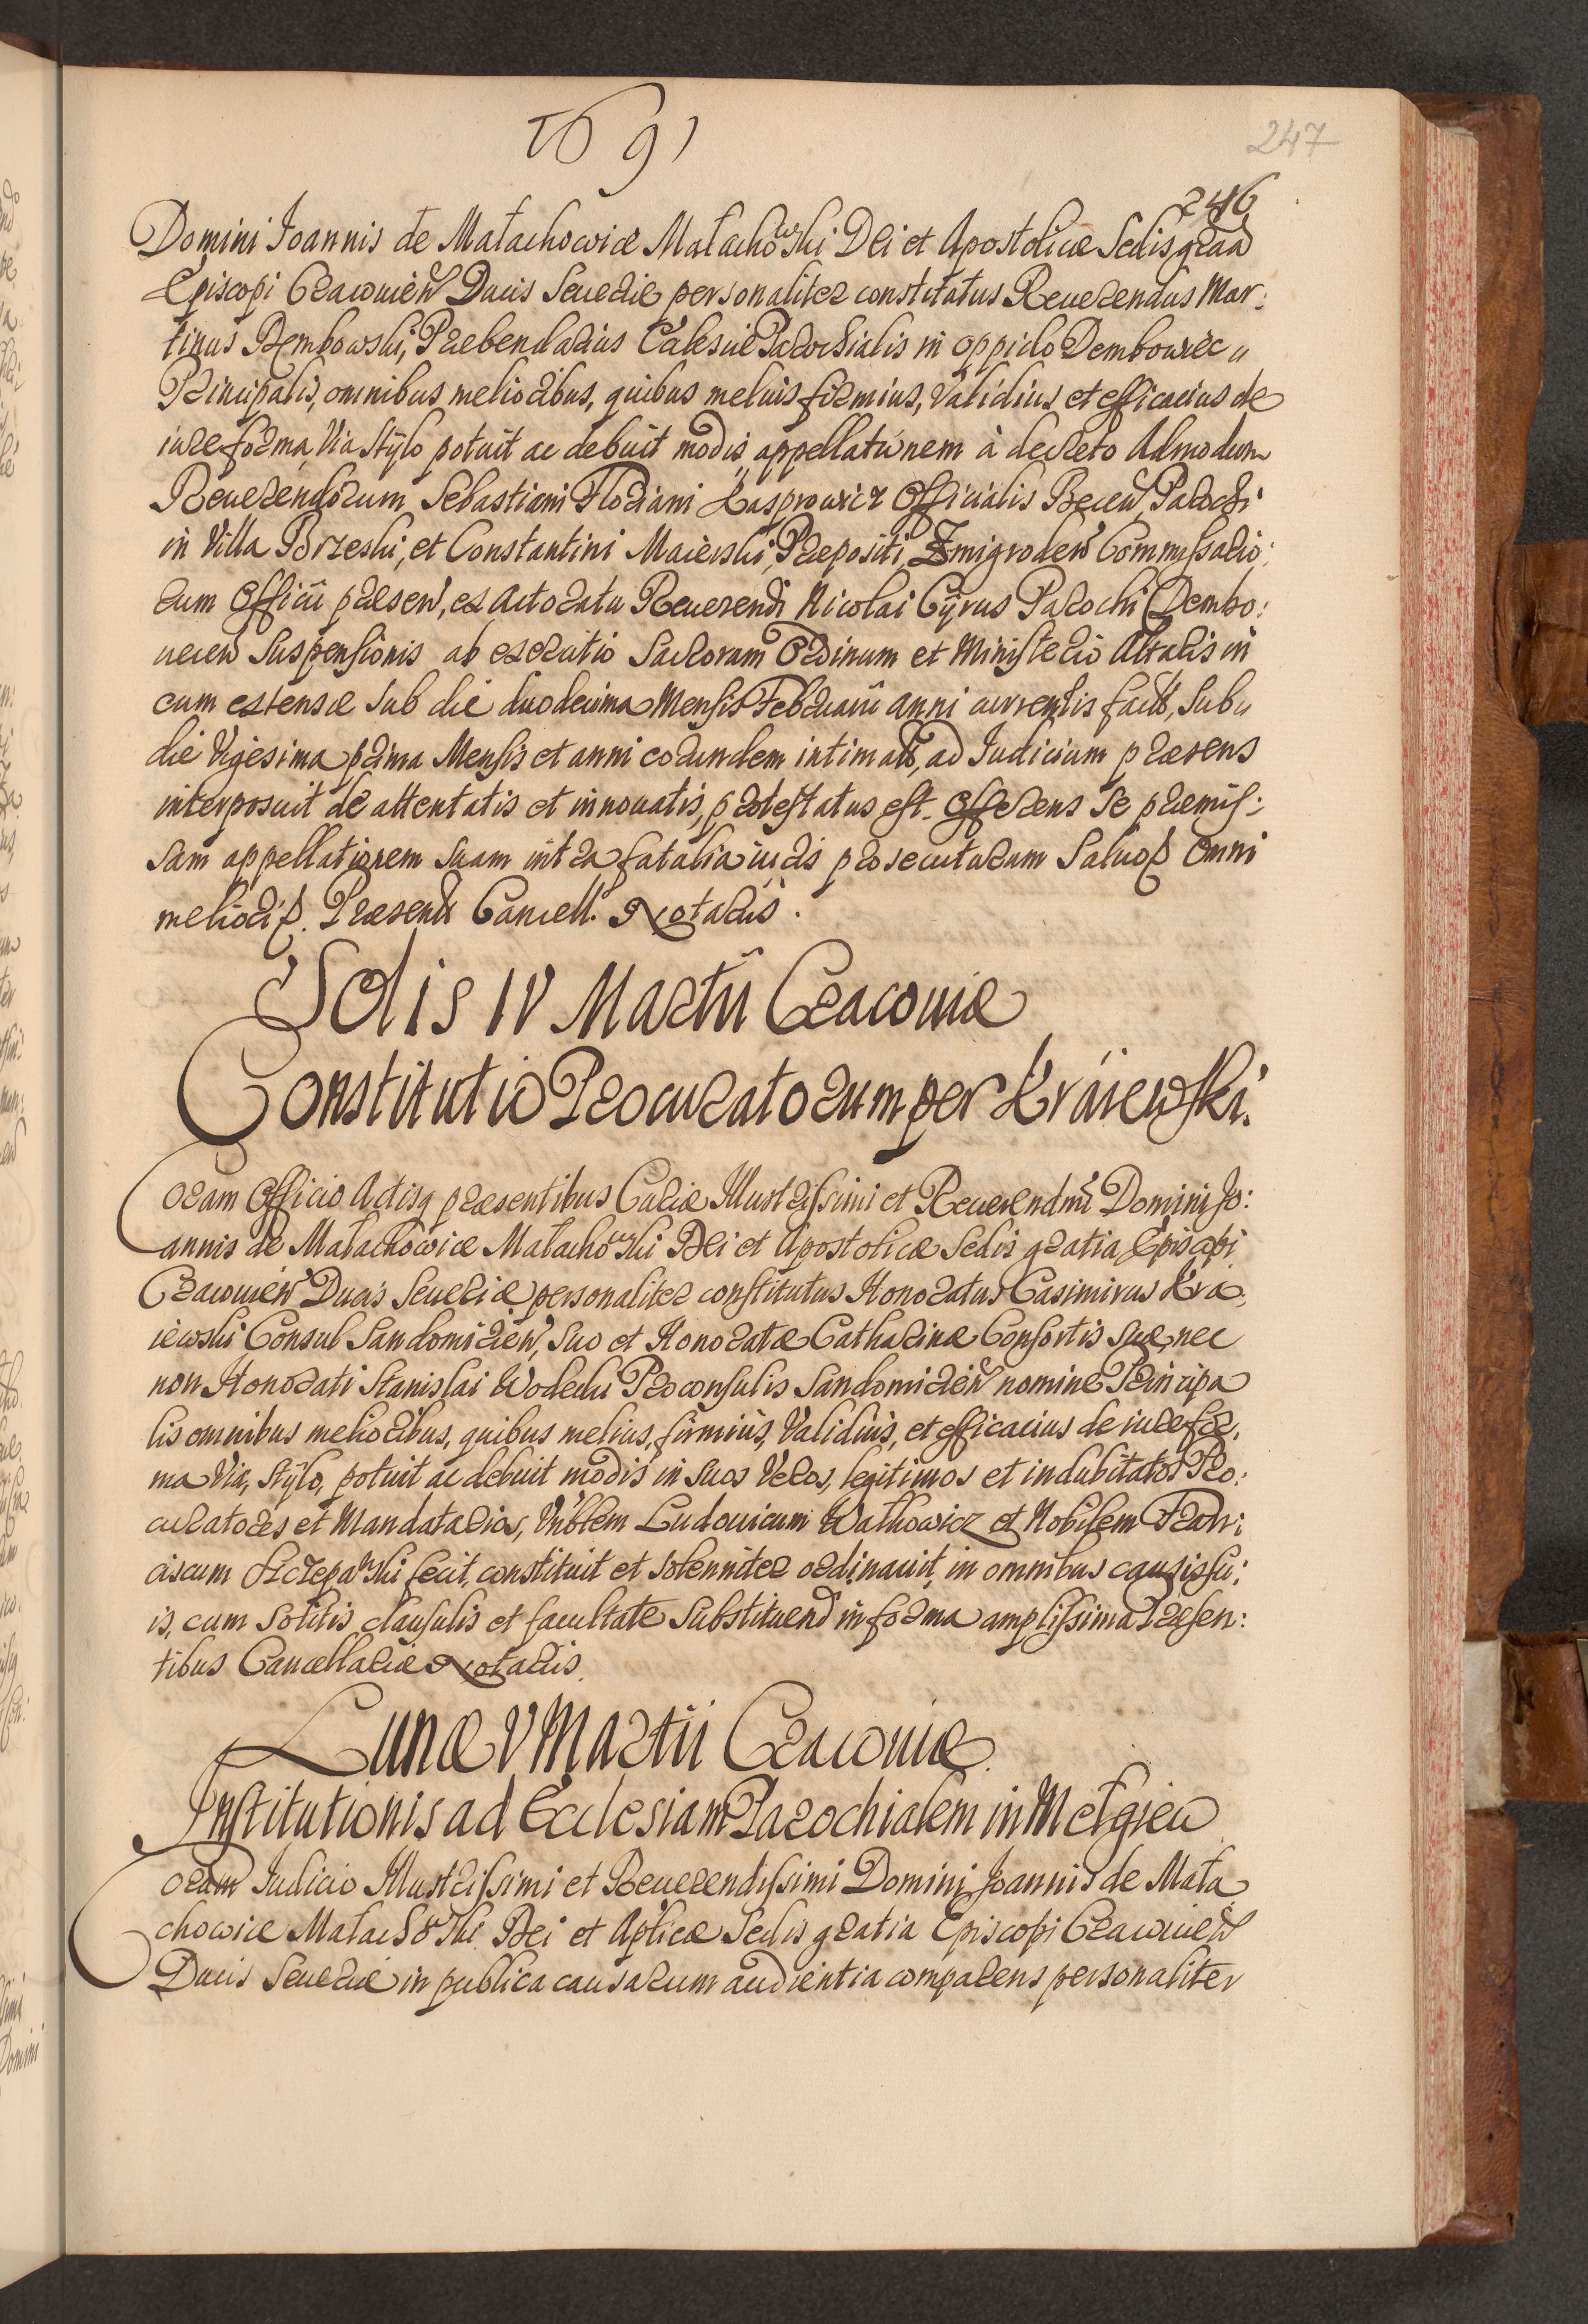 1691
247
246
Domini Joannis de Małachowice Małachowski Dei et Apostolicæ Sedis graã
Episcopi Cracovien Ducis Severiæ personaliter constitutus Reverendus Mar:
tinus Dembowski, Præbendarius Ecclesiæ Parochialis in oppido Dembowiec
Principalis, omnibus melioribus, quibus melius firmius, validius et efficacius de
iure forma via stylo potuit ac debuit modis appellationem à decreto Admodum
Reverendorum Sebastiani Floriani Kasprowicz Officialis Becen, Parochi
in Villa Brzeski, et Constantini Maierski, Præpositi Zmigroden Commissario:
rum Officii præsen, ex Actoratu Reverendi Nicolai Cyrus Parochi Dembo:
vecen Suspensionis ab exercitio Sacrorum Ordinum et Ministerio Altaris in
eum extensæ sub die duodecima Mensis Februarii anni currentis fact, sub
die Vigesima prima Mensis et anni eorundem intimat, ad Judicium præsens
interposuit de attentatis et innovatis, protestatus est. offerens se præmis:
sam appellationem suam intra fatalia iuris prosecuturam Salvoq omni
meliori p. Præsent Cancell. Notariis.
Solis IV Martii Cracoviæ
Constitutio Procuratorum per Kraiewski.
Coram Officio Actisq præsentibus Curiæ Illustrissimi et Reverendmi Domini Jo:
annis de Małachowice Małachowski Dei et Apostolicæ Sedis gratia Episcopi
Cracovien Ducis Severiæ personaliter constitutus Honoratus Casimirus Kra
iewski Consul Sandomirien, suo et Honoratæ Catharinæ Consortis suæ nec
non Honorati Stanislai Wodecki Proconsulis Sandomirien nomine Principa
lis omnibus melioribus, quibus melius, firmius, validius, et efficacius de iure for,
ma via, stylo, potuit ac debuit modis in suos veros, legitimos et indubitatos Pro:
curatores et Mandatarios, Ludovicum Wathowicz et Nobilem Fran:
ciscum Szczepański fecit, constituit et solenniter ordinavit, in omnibus causis su:
is, cum solitis clausulis et facultate substituend in forma amplissima Præsen:
tibus Cancellariæ Notariis.
Lunæ V Martii Cracoviæ.
Institutionis ad Ecclesiam Parochialem in Mełgiew
Coram Judicio Illustrissimi et Reverendissimi Domini Joannis de Mała
chowice Małachowski Dei et Aplicæ Sedis gratia Episcopi Cracovien
Ducis Severiæ in publica causarum audientia comparens personaliter